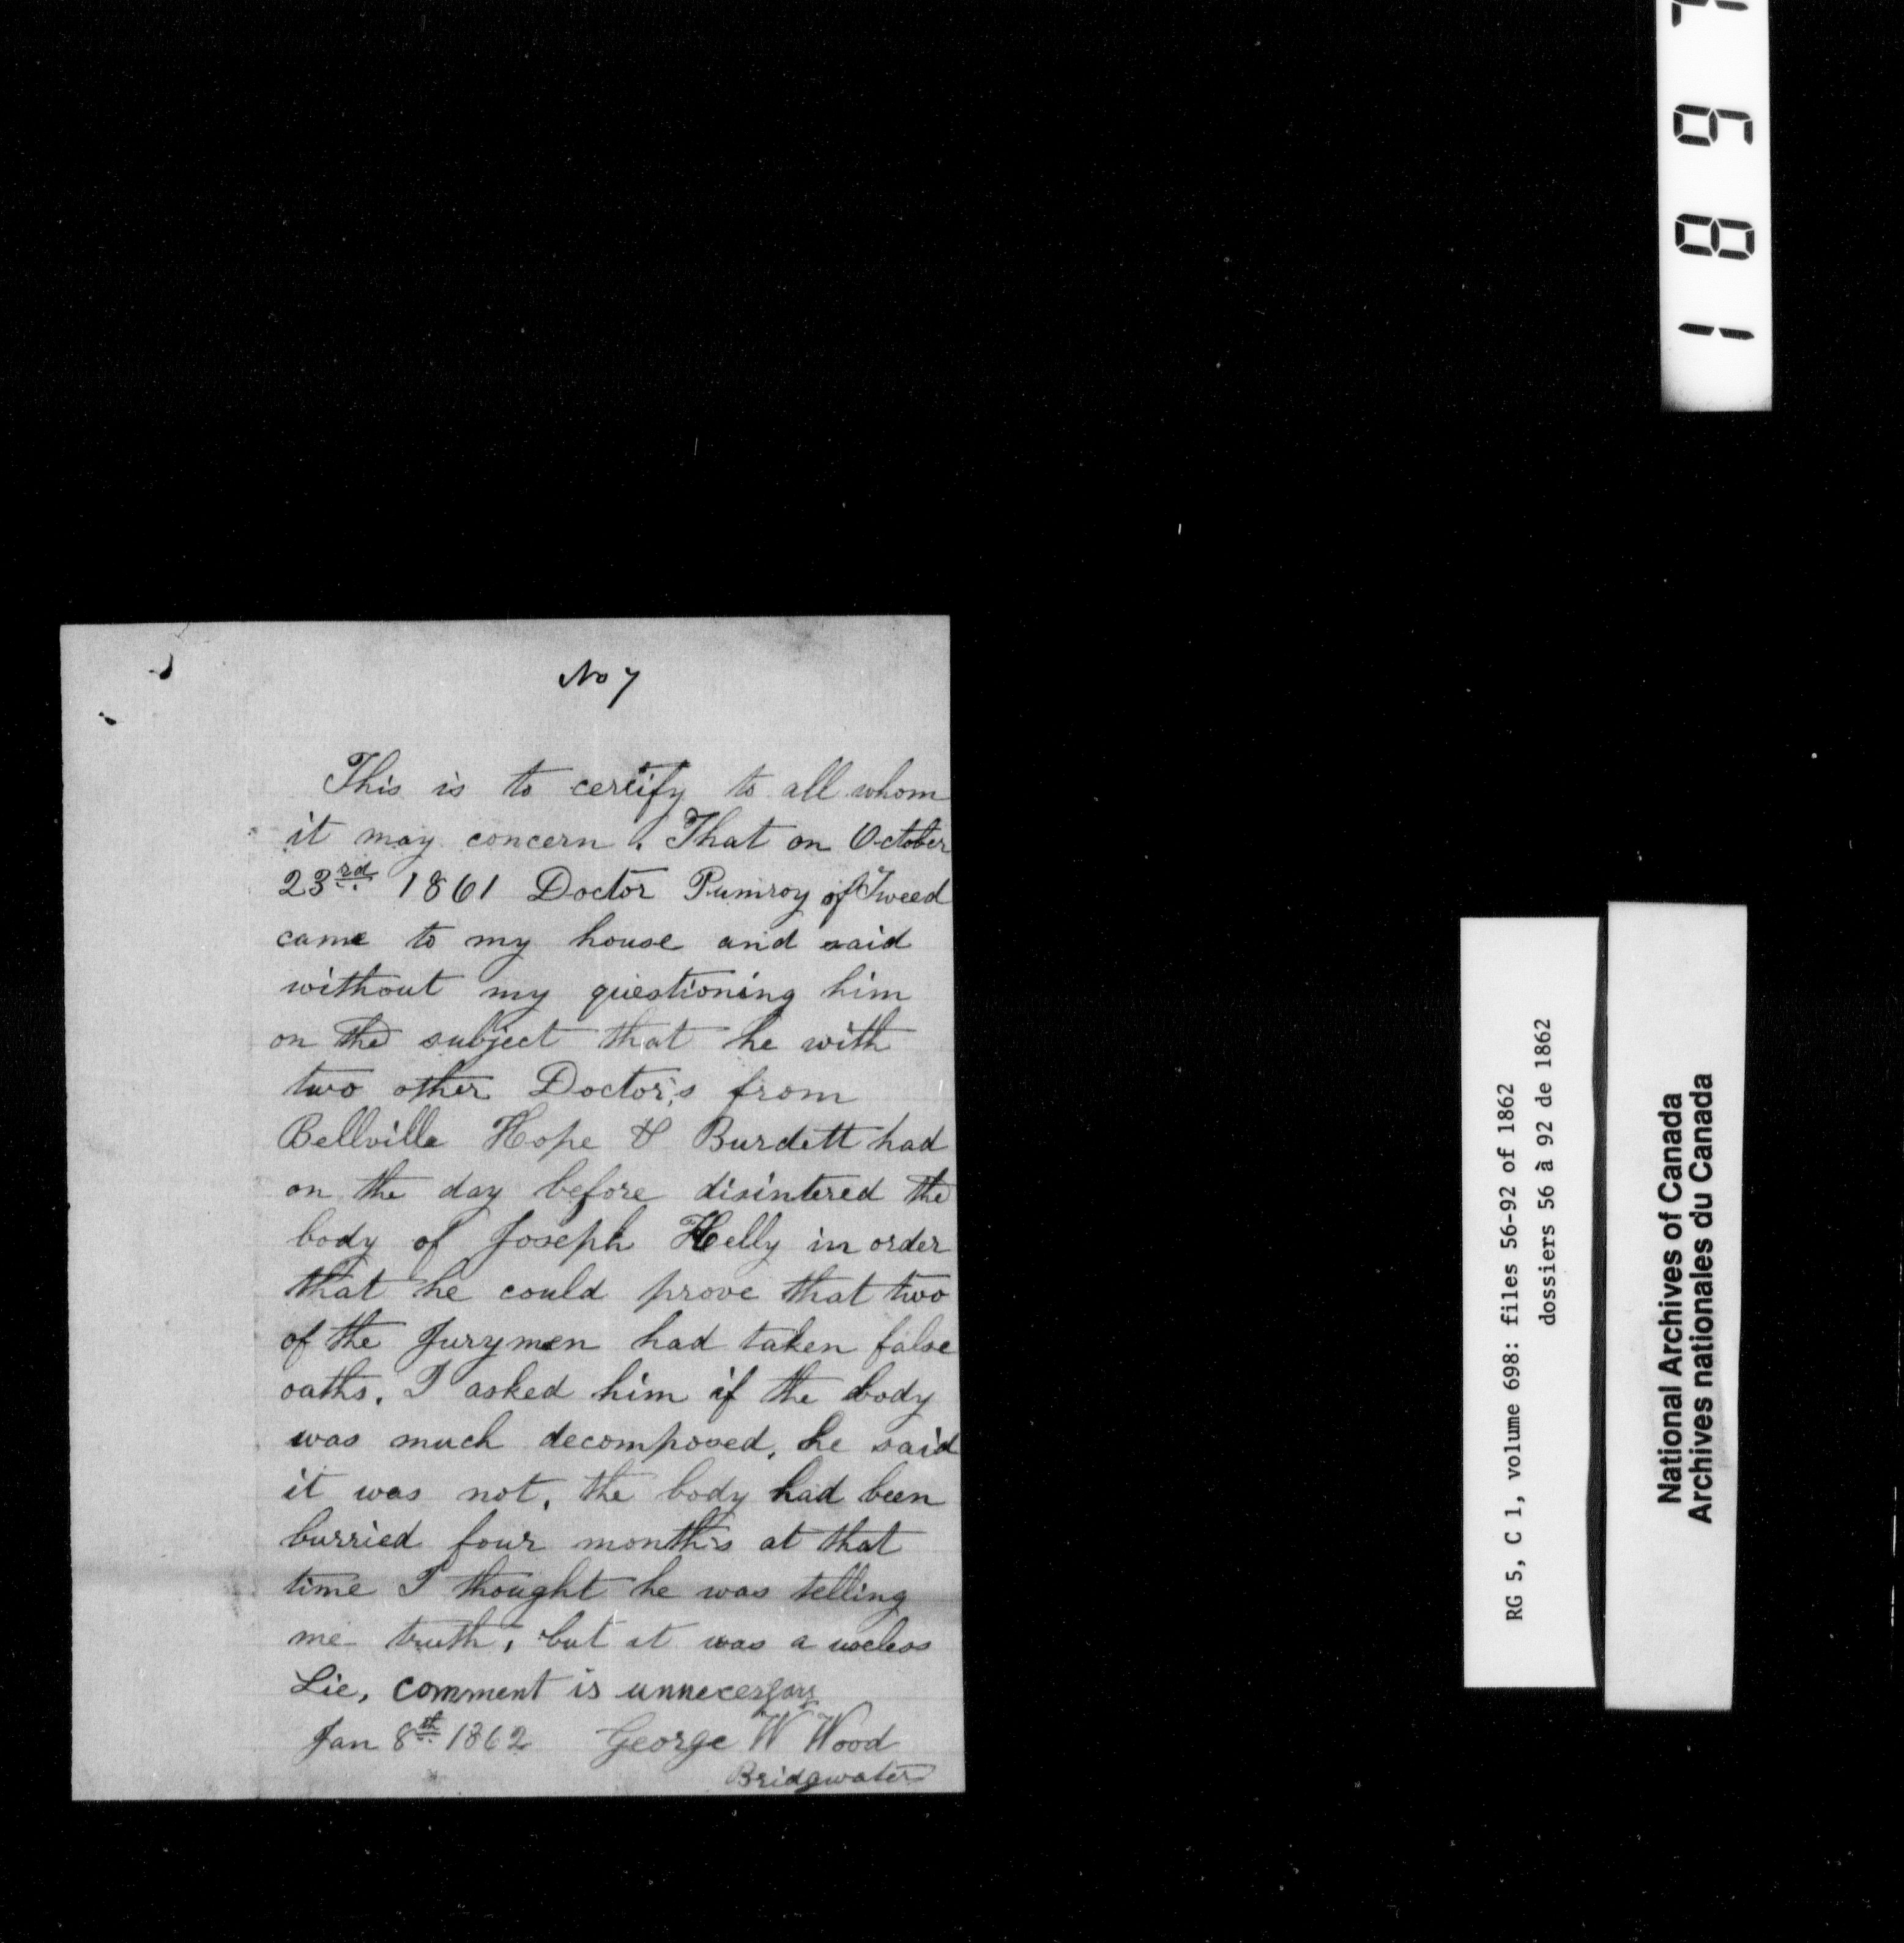 No 7
This is to certify to all whom
it may concern. That on October
23rd 1861 Doctor Pumroy of Tweed
came to my house and said
without my questioning him
on the subject that he with
two other Doctor's from
Bellville Hope & Burdett had
on the day before disintered the
body of Joseph Helly in order
that he could prove that two
of the Jurymen had taken false
oaths. I asked him if the body
was much decomposed, he said
it was not, the body had been
burried four months at that
time I thought he was telling
me truth, but it was a useless
Lie, comment is unnecessary
Jan 8th 1862 George W Wood
Bridgwater
RG 5, C 1, volume 698: files 56-92 of 1862
dossiers 56 à 92 de 1862
National Archives of Canada
Archives nationales du Canada
1 8 9